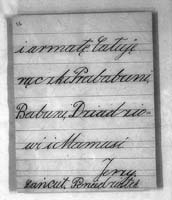 i armatę. Całuję
rączki Prababuni,
Babuni, Dziadzio-
wi i Mamusi
Jerzy
Łańcut, Poniedziałek